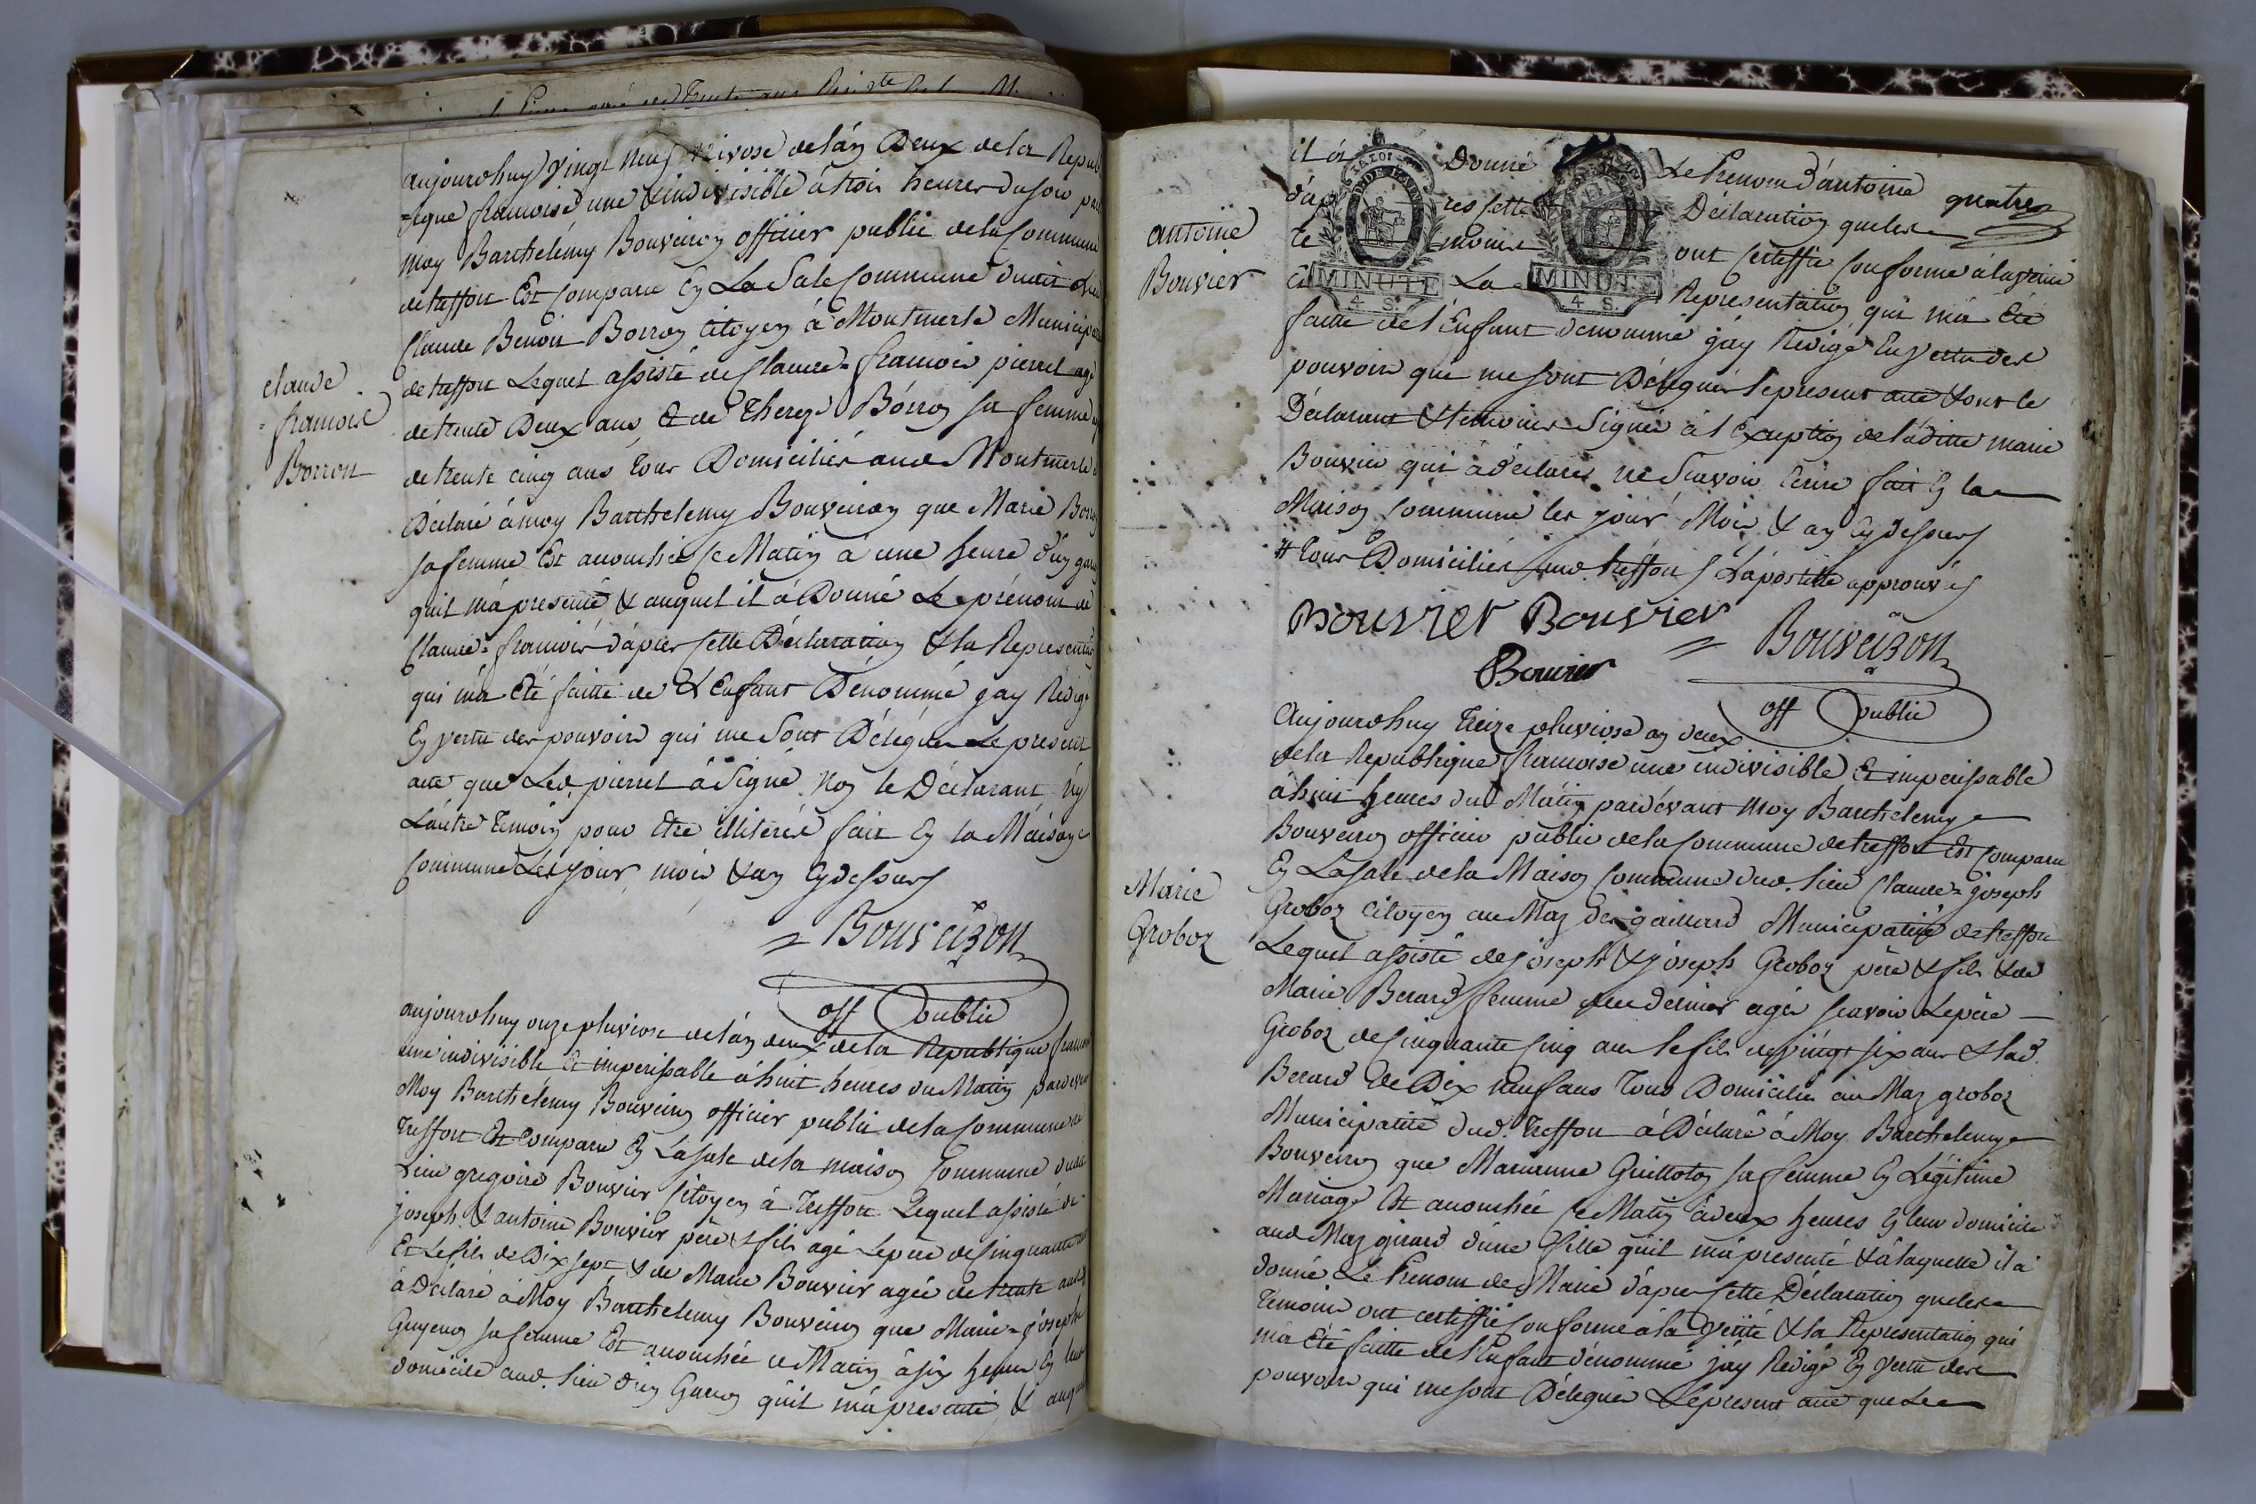 claude
=francois
Borron
aujourdhuy vingt neuf nivose de lán Deux de la Repub
=ique francoise une & indivisible á trois heures du soir
moy Barthélémy Bouveiron officier public de la Commune
de treffort Est Comparu En La Sale Commune dudit Lieu
Claude Benoit Borron Citoyen á Montmerle Municip
de treffort Lequel assisté de Claude=francois pierrel agé
de trente Deux ans, & de Therese Borron sa femme
de trente cinq ans tous Domiciliés aud Montmerle
Déclaré á moy Barthelemy Bouveiron que Marie Borron
sa femme Est accouchée ce Matin a une heure d'un
quil má presenté & auquel il á Donné Le prénom de
Claude=francois dápres cette Déclaration & la Representation
qui má Eté faitte de L'Enfant Dénommé jay Rédigé
En vertu des pouvoirs qui me Sont Délégués Le present
acte que Led. pierrel á Signé. Non le Déclarant Ny
Láutre temoin pour Etre illiterés fait En la Maison
Commune Les jour, mois & an Cydessus
= Bouveiron
off public
aujourdhuy onze pluviose de lán deux de la Republique
une indivisible Et imperissable á huit heures du Matin
Moy Barthélemy Bouveiron officier public de la Commune de
Treffort Est Comparu En Lá Sale de la maison Commune
Lieu gregoire Bouvier Citoyen á Treffort Lequel assisté de
joseph & antoine Bouvier père & fils agé Le père de Cinquante
Et Le fils de Dix sept & de Marie Bouvier agée de trente
á Déclaré á Moy Barthelemy Bouveiron que Marie=joseph
Guyenon sa femme Est accouchée ce Matin á six heures En
domicile aud. Lieu d'un Garçon quil má presenté, &
antoine
Bouvier
quatre
il á Donné Le Prenom d'antoine
dápres cette Déclaration que les
te moins ont certiffié conforme á la verité
& La Representation qui má Eté
LA LOI
MINUTE
4 S.
MINUTE
4 S.
faitte de l'Enfant denommé jáy Redigé En vertu des
pouvoirs qui me sont Délégués le present acte & ont le
Déclarant & temoins Signés á l'Exception de láditte marie
Bouvier qui á déclaré ne Scavoir Ecrire fait En la
Maison Commune les jour Mois & an Cydessus
# tous Domiciliés aud. treffort Lápostille approuvés
Bouvier Bouvier
= Bouveiron
Bouvier
off public
Marie
Groboz
Aujourdhuy treize pluviose an deux
de la Republique francoise une indivisible Et imperissable
á huit heures du Matin pardévant Moy Barthelemy
Bouveiron officier public de la Commune de treffort Est Comparu
En La Sale de la Maison Commune dud. Lieu Claude=joseph
Groboz Citoyen au Maz gaillard Municipalité de treffort
Lequel assisté de joseph & joseph Groboz père & fils & de
Marie Berard femme du dernier agés scavoir Le père
Groboz de Cinquante Cinq ans le fils de vingt six ans & lad.
Berard de Dix neuf ans Tous Domiciliés au Maz groboz
Municipalité dud. treffort á Déclaré á Moy Barthelemy
Bouveiron que Marianne Guilloton sa femme En Légitime
Mariage Est accouchée ce Matin á deux heures En leur domicile
aud Maz girard d'une fille quil má presenté & á laquelle il á
donné Le Prenom de Marie d'apres cette Déclaration que les
temoins ont certiffié conforme á la verité & la Representation qui
má Eté faitte de l'Enfant dénommé jáy Redigé En vertu des
pouvoirs qui me sont Délégués Le present acte que Le